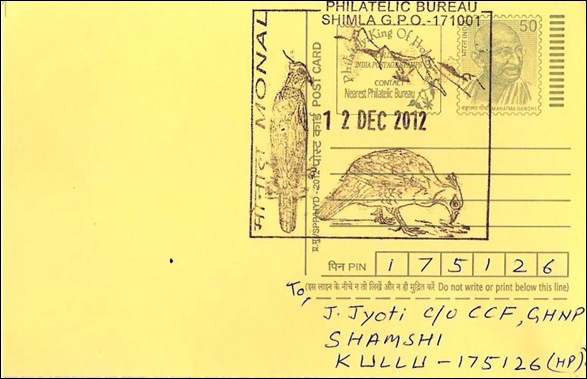 PHILATELIC BUREAU
SHIMLA G.P.O.-171001
मोनाल MONAL
Philately King Of Hobbies
INDIA POSTAGE STAMPS
CONTACT
Nearest Philatelic Bureau
50
भारत INDIA
महात्मा गाँधी MAHATMA GANDHI
12 DEC 2012
पोस्ट कार्ड POST CARD
पिन PIN 175126
(इस लाइन के नीचे न तो लिखें और न ही मुद्रित करें Do not write or print below this line)
To,
J. Jyoti C/O CCF, GHNP
SHAMSHI
KULLU - 175126 (HP)